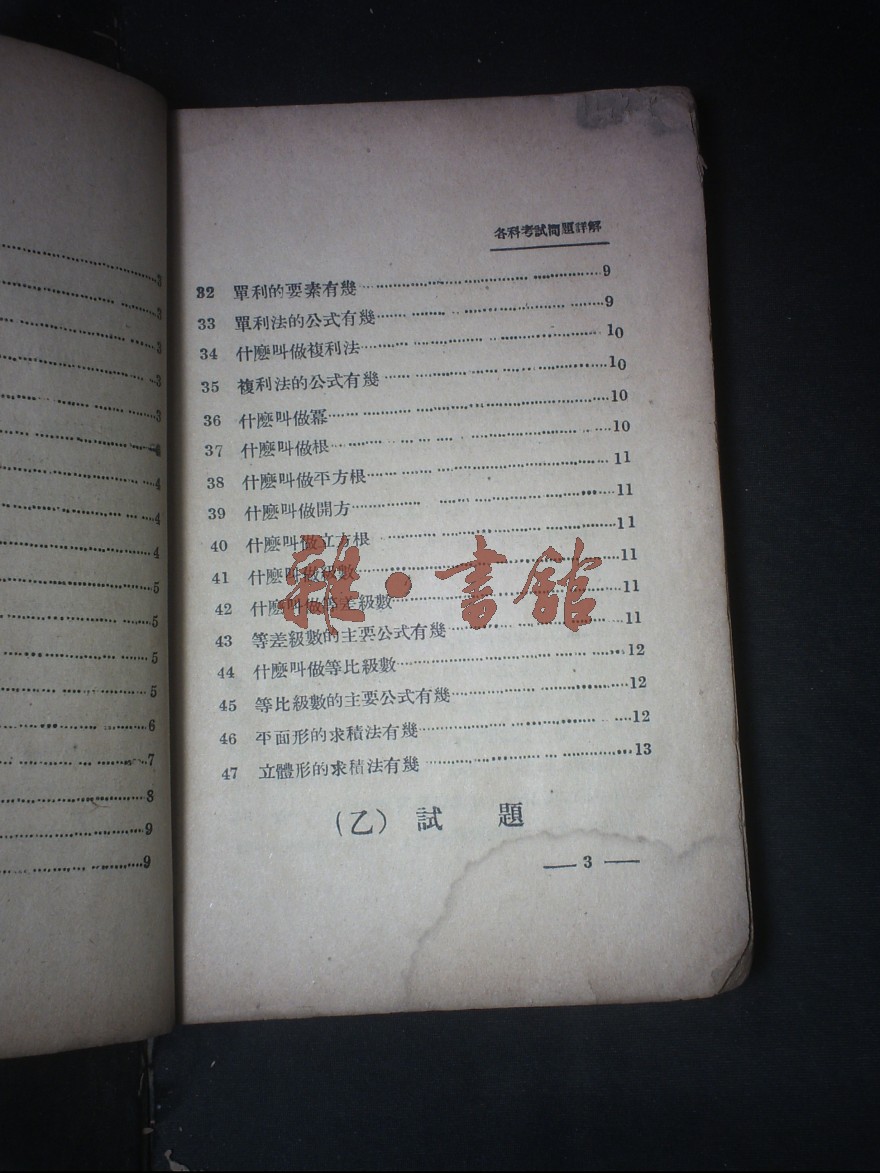 各科考試問題詳解
32 單利的要素有幾 9
33 單利法的公式有幾 9
34 什麽叫做複利法 10
35 複利法的公式有幾 10
36 什麽叫做冪 10
37 什麽叫做根 10
38 什麽叫做平方根 11
39 什麽叫做開方 11
40 什麽叫做立方根 11
41 什麽叫做級數 11
42 什麽叫做等差級數 11
43 等差級數的主要公式有幾 11
44 什麽叫做等比級數 12
45 等比級數的主要公式有幾 12
46 平面形的求積法有幾 12
47 立體形的求積法有幾 13
(乙) 試 題
— 3 —
雅·書館
3
3
3
3
3
4
4
4
5
5
5
5
6
7
8
9
9